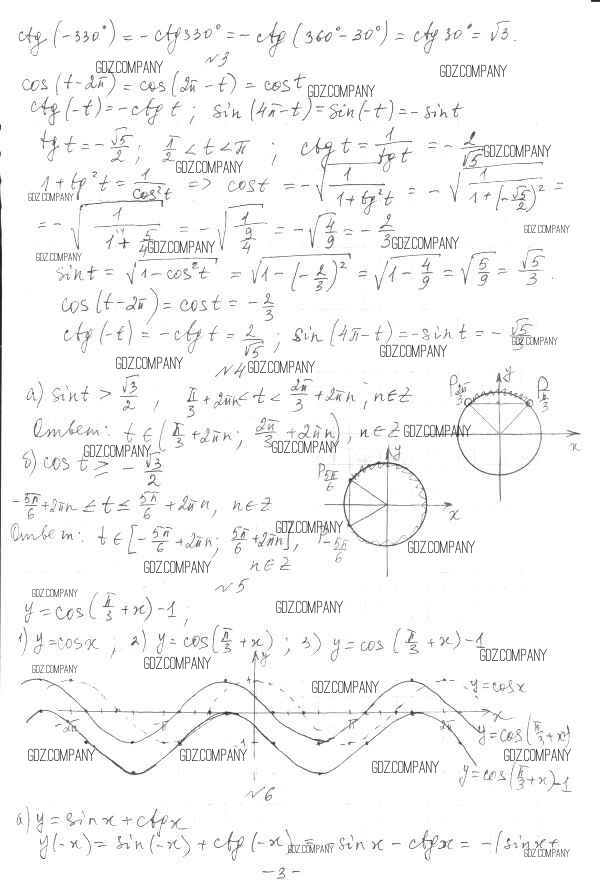 ctg(-330°) = -ctg330° = -ctg(360°-30°) = ctg30° = √3.
№3
GDZ.COMPANY GDZ.COMPANY
cos(t-2π) = cos(2π-t) = cost
GDZ.COMPANY
ctg(-t) = -ctgt; sin(4π-t) = sin(-t) = -sint
tgt = -√5/2; π/2 < t < π; ctgt = 1/tgt = -2/√5
GDZ.COMPANY GDZ.COMPANY
1+tg²t = 1/cos²t => cost = -√(1/(1+tg²t)) = -√(1/(1+(-√5/2)²)) =
GDZ.COMPANY
= -√(1/(1+5/4)) = -√(1/(9/4)) = -√(4/9) = -2/3
GDZ.COMPANY GDZ.COMPANY GDZ.COMPANY GDZ.COMPANY
sint = √(1-cos²t) = √(1-(-2/3)²) = √(1-4/9) = √(5/9) = √5/3.
cos(t-2π) = cost = -2/3
ctg(-t) = -ctgt = 2/√5; sin(4π-t) = -sint = -√5/3
GDZ.COMPANY GDZ.COMPANY GDZ.COMPANY
№4
GDZ.COMPANY
а) sint > √3/2, π/3+2πn < t < 2π/3+2πn, n∈Z
P2π/3 y Pπ/3 x
Ответ: t∈(π/3+2πn; 2π/3+2πn), n∈Z
GDZ.COMPANY GDZ.COMPANY GDZ.COMPANY
б) cost ≥ -√3/2
P5π/6 y x
-5π/6+2πn ≤ t ≤ 5π/6+2πn, n∈Z
GDZ.COMPANY
Ответ: t∈[-5π/6+2πn; 5π/6+2πn], n∈Z
P-5π/6
GDZ.COMPANY GDZ.COMPANY
№5
GDZ.COMPANY GDZ.COMPANY
y = cos(π/3+x)-1;
1) y=cosx; 2) y=cos(π/3+x); 3) y=cos(π/3+x)-1
GDZ.COMPANY GDZ.COMPANY GDZ.COMPANY
y
GDZ.COMPANY
y=cosx
-2π -π π 2π x
y=cos(π/3+x)
-1
GDZ.COMPANY GDZ.COMPANY GDZ.COMPANY GDZ.COMPANY
y=cos(π/3+x)-1
№6
а) y=sinx+ctgx
y(-x) = sin(-x)+ctg(-x) = -sinx-ctgx = -(sinx+
GDZ.COMPANY GDZ.COMPANY
-3-